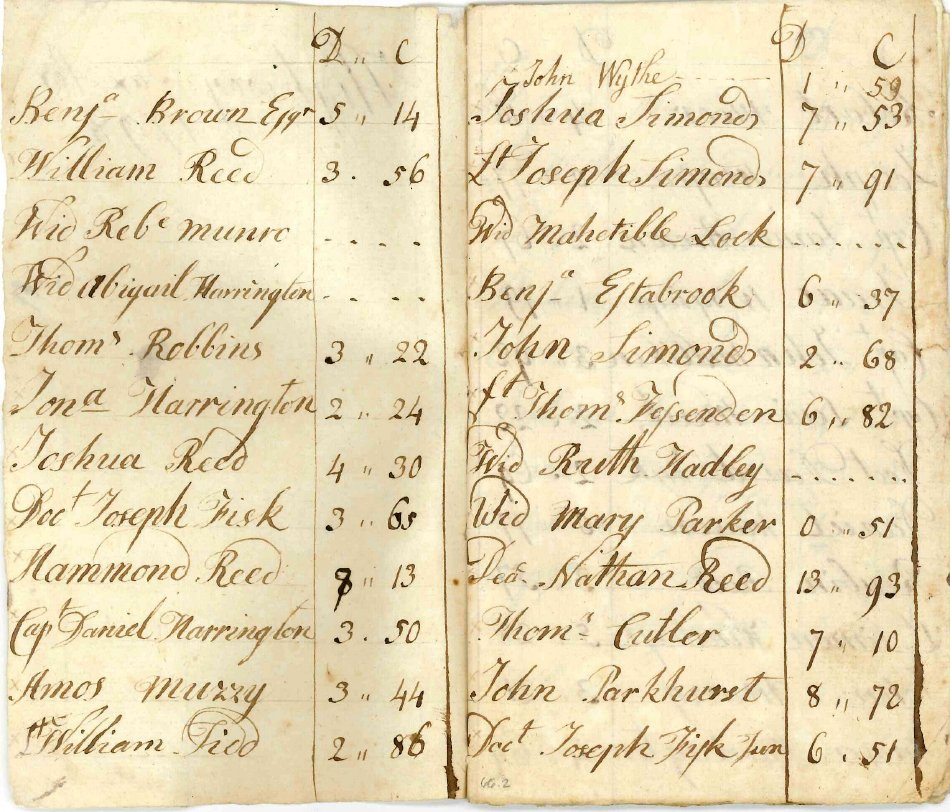 D " C
Benjᵃ Brown Esqʳ 5 " 14
William Reed 3 . 56
Wid Rebᵉ munro - - - -
Wid Abigail Harrington - - - -
Thomˢ Robbins 3 " 22
Jonᵃ Harrington 2 " 24
Joshua Reed 4 " 30
Docᵗ Joseph Fisk 3 " 65
Hammond Reed 8 " 13
Capᵗ Daniel Harrington 3 . 50
Amos Muzzy 3 " 44
William Tidd 2 " 86
D C
John Wythe 1 " 59
Joshua Simonds 7 " 53
Lᵗ Joseph Simonds 7 " 91
Wid Mahetible Lock - - - - - -
Benjᵃ Estabrook 6 " 37
John Simonds 2 " 68
Lᵗ Thomˢ Fessenden 6 " 82
Wid Ruth Hadley - - - - - -
Wid Mary Parker 0 " 51
Deaⁿ Nathan Reed 13 " 93
Thomˢ Cutler 7 " 10
John Parkhurst 8 " 72
Docᵗ Joseph Fisk Jun 6 . 51
66.2